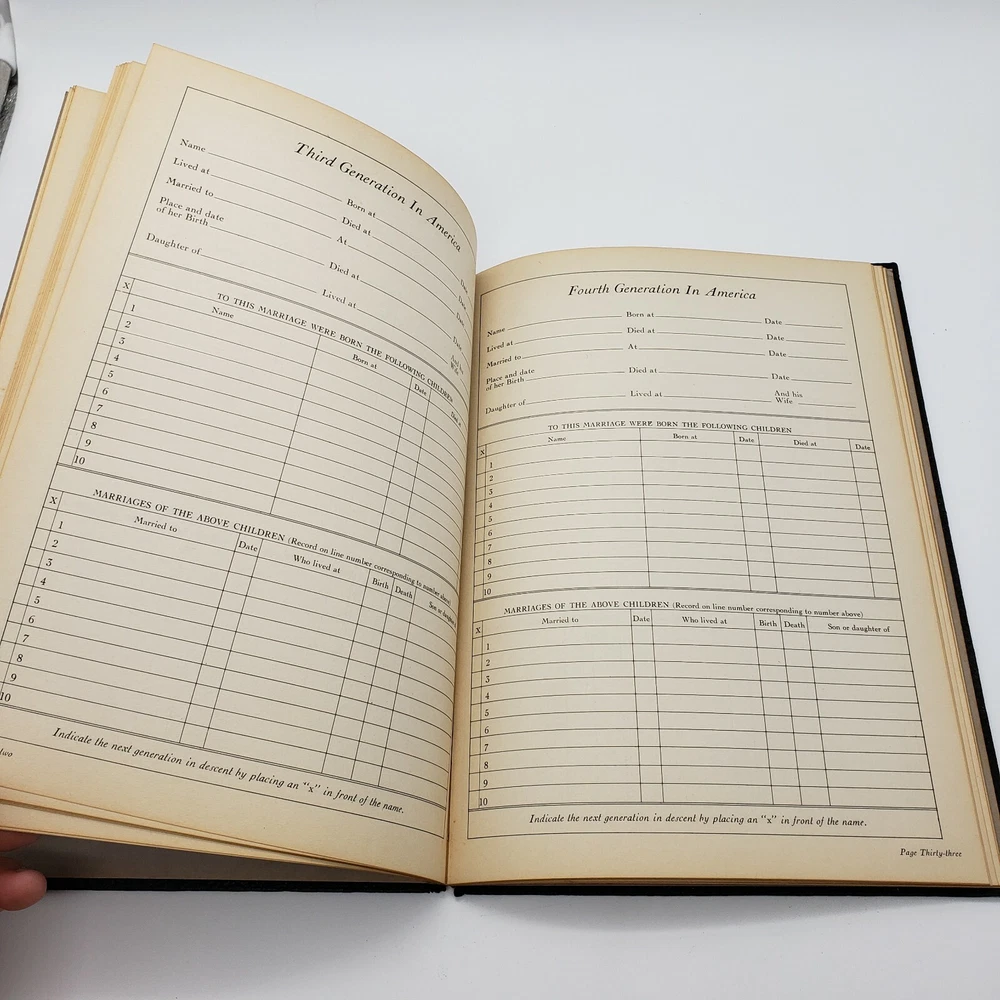 Third Generation In America
Name Born at
Lived at Died at
Married to At
Place and date
of her Birth Died at
Daughter of Lived at And his
Wife
TO THIS MARRIAGE WERE BORN THE FOLLOWING CHILDREN
X Name Born at Date Died at
1
2
3
4
5
6
7
8
9
10
MARRIAGES OF THE ABOVE CHILDREN (Record on line number corresponding to number above)
X Married to Date Who lived at Birth Death Son or daughter
1
2
3
4
5
6
7
8
9
10
Indicate the next generation in descent by placing an "x" in front of the name.
two
Fourth Generation In America
Name Born at Date
Lived at Died at Date
Married to At Date
Place and date
of her Birth Died at Date
Daughter of Lived at And his
Wife
TO THIS MARRIAGE WERE BORN THE FOLLOWING CHILDREN
X Name Born at Date Died at Date
1
2
3
4
5
6
7
8
9
10
MARRIAGES OF THE ABOVE CHILDREN (Record on line number corresponding to number above)
X Married to Date Who lived at Birth Death Son or daughter of
1
2
3
4
5
6
7
8
9
10
Indicate the next generation in descent by placing an "x" in front of the name.
Page Thirty-three